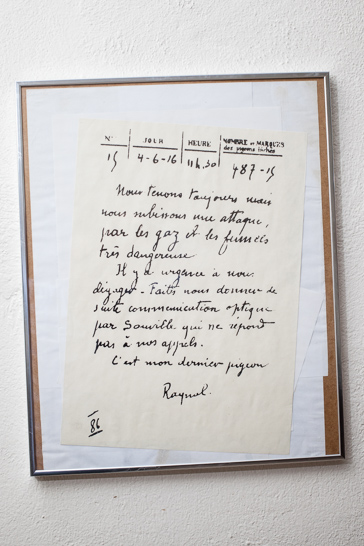 N° JOUR HEURE NOMBRE et MARQUES
des pigeons lâchés
15 4-6-16 11h,30 487-15
Nous tenons toujours mais
nous subissons une attaque,
par les gaz et les fumées
très dangereuse
Il y a urgence à nous
dégager - Faites nous donner de
suite communication optique
par Souville qui ne répond
pas à nos appels.
C'est mon dernier pigeon
Raynal.
86